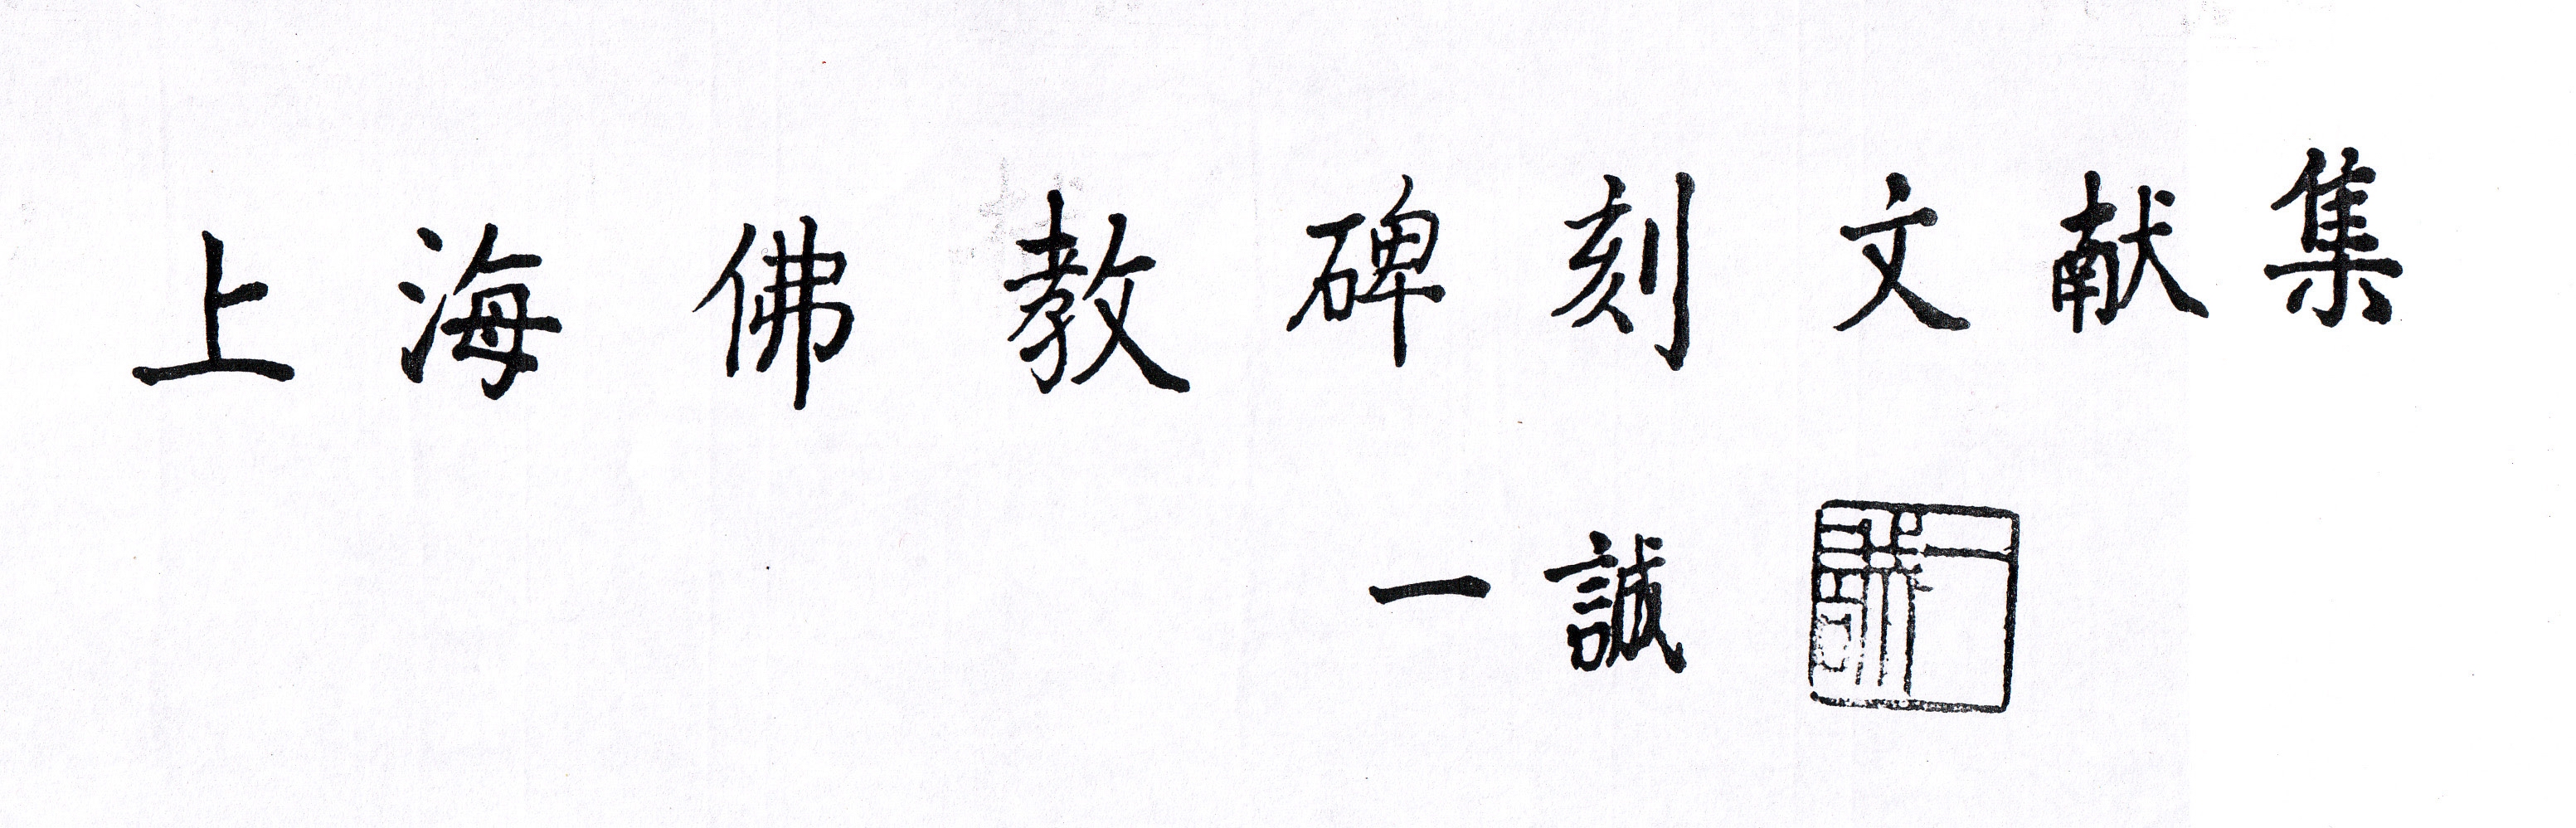 上海佛教碑刻文献集
一誠
一誠